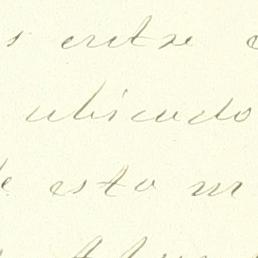 s entre
ubicado
de esta m